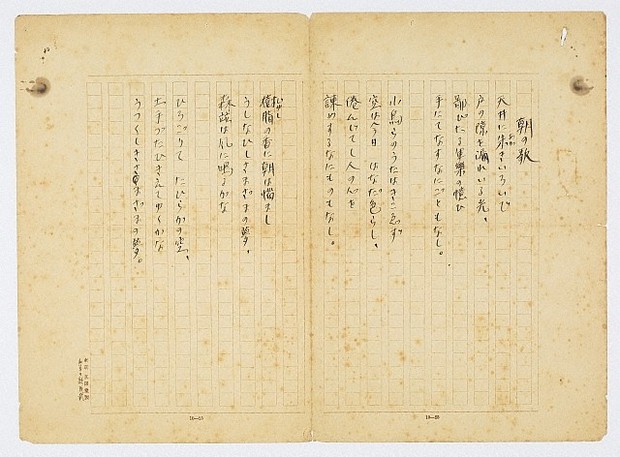 朝の歌
天井に 朱きいろいで
戸の隙を 漏れいる光、
鄙びたる 軍樂の憶ひ
手にてなす なにごともなし。
小鳥らの うたはきこえず
空は今日 はなだ色らし、
倦んじてし 人の心を
諫めする なにものもなし。
樹脂の香に 朝は惱まし
うしなひし さまざまの夢、
森竝は 風に鳴るかな
ひろごりて たひらかの空、
土手づたひ きえてゆくかな
うつくしき さまざまの夢。